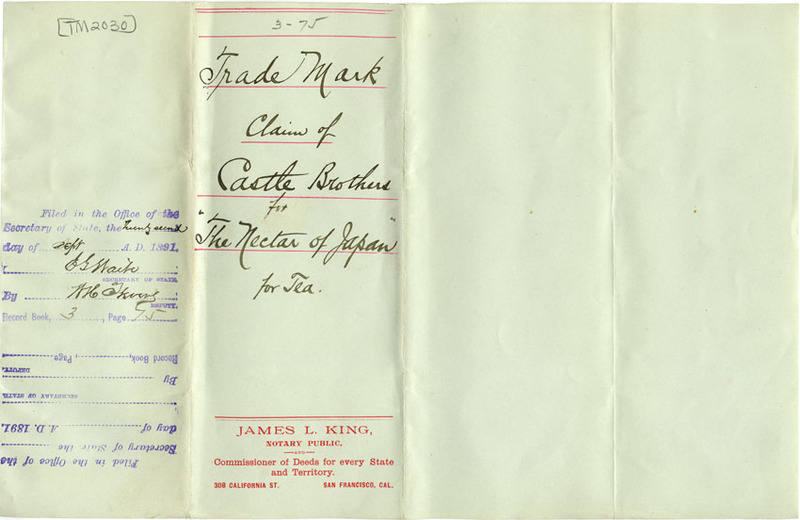 [TM2030]
3-75
Trade Mark
Claim of
Castle Brothers
for
"The Nectar of Japan"
for Tea.
JAMES L. KING,
NOTARY PUBLIC,
AND
Commissioner of Deeds for every State
and Territory.
308 CALIFORNIA ST. SAN FRANCISCO, CAL.
Filed in the Office of the
Secretary of State, the twenty second
day of Sept A. D. 1891.
E G Waite
SECRETARY OF STATE.
By
DEPUTY.
Record Book, 3, Page 75
Filed in the Office of the
Secretary of State the
day of A. D. 1891.
SECRETARY OF STATE
By
DEPUTY.
Record Book, , Page